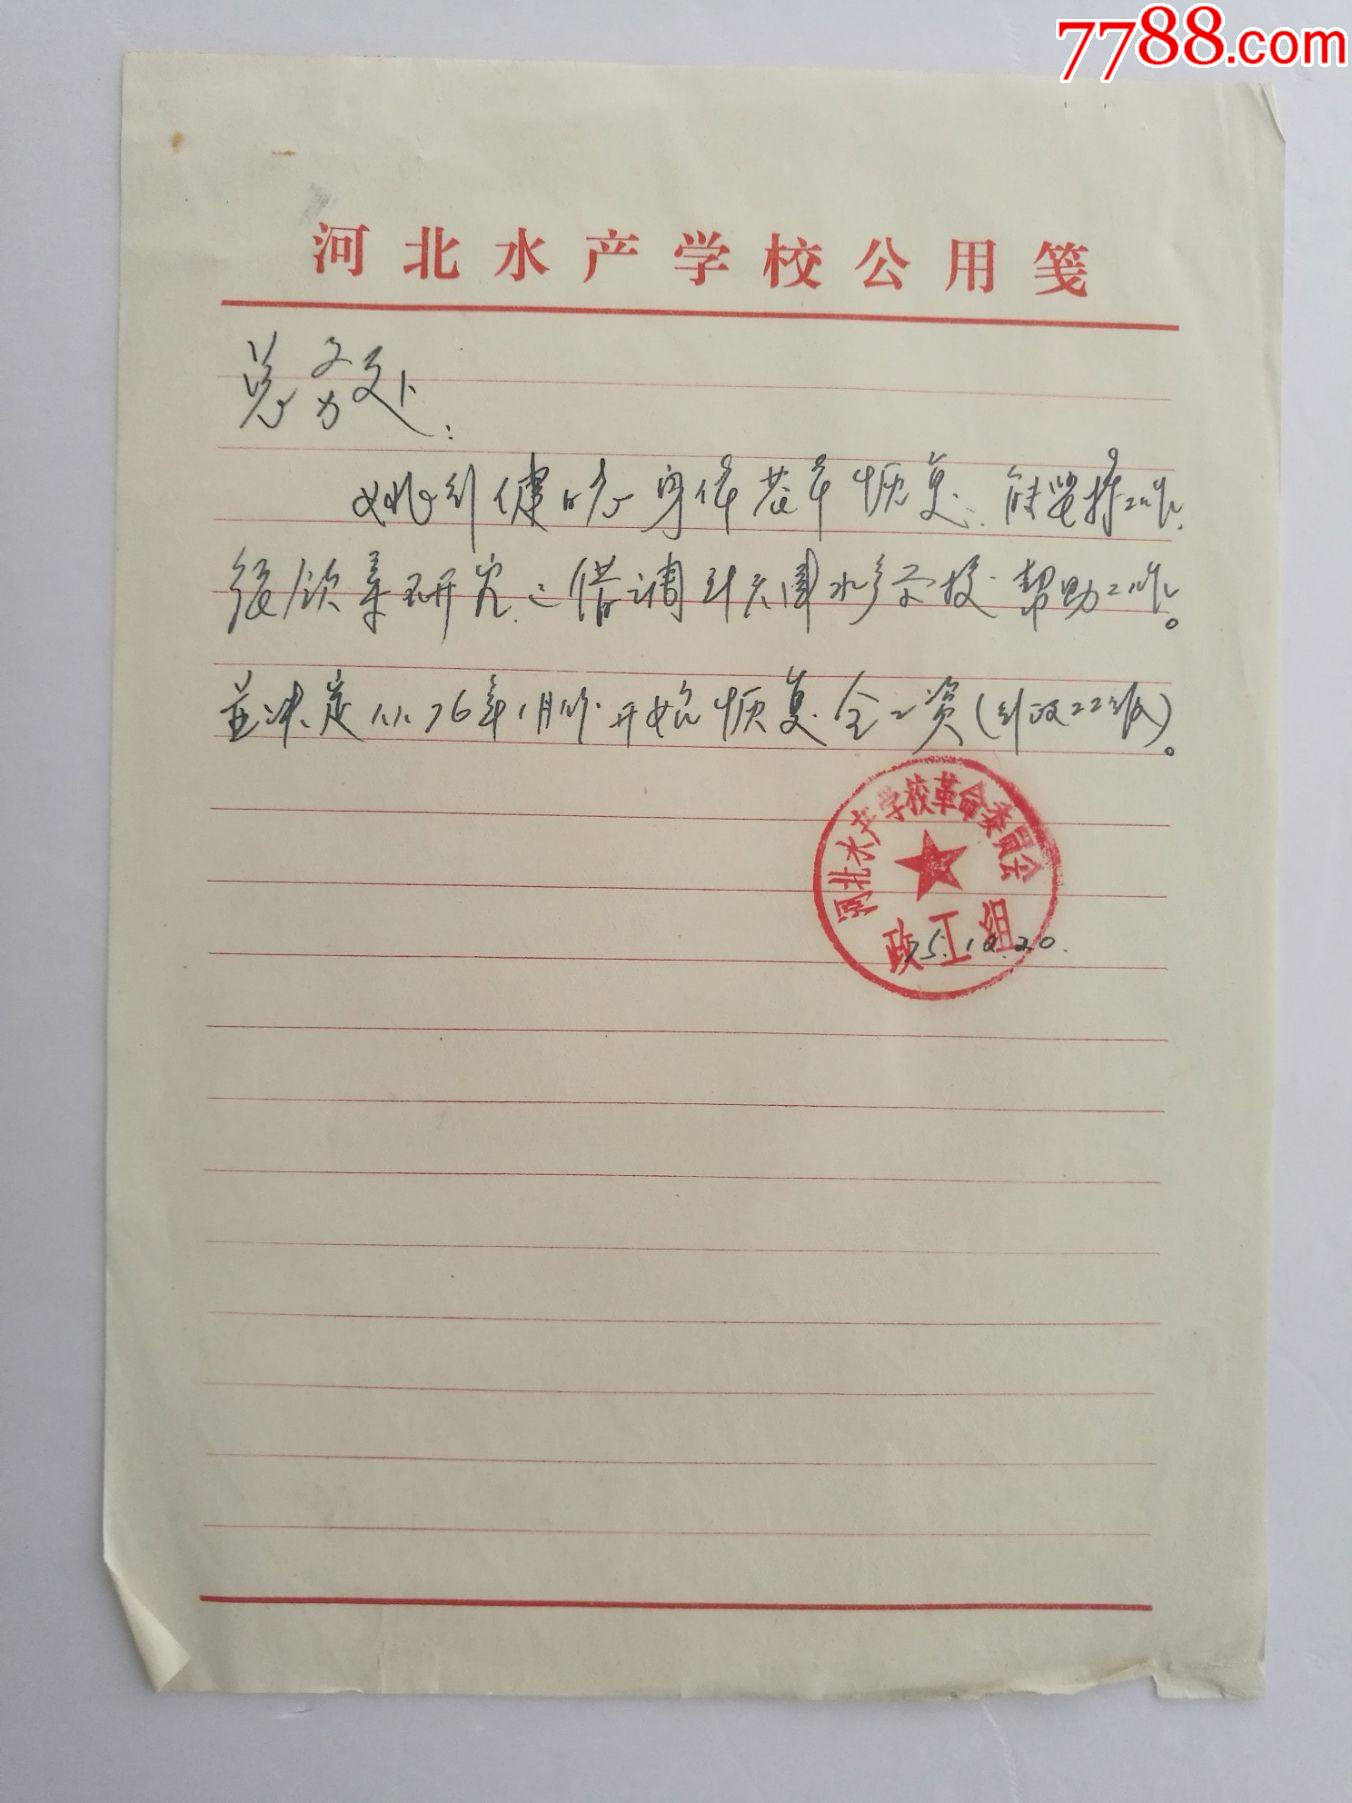 7788.com
河北水产学校公用笺
总务处：
身体基本恢复，能坚持工作，
经领导研究，已借调到 水产学校帮助工作。
並决定从76年1月份开始恢复全工资（行政22级）。
河北水产学校革命委員会
政工组
75.12.20.